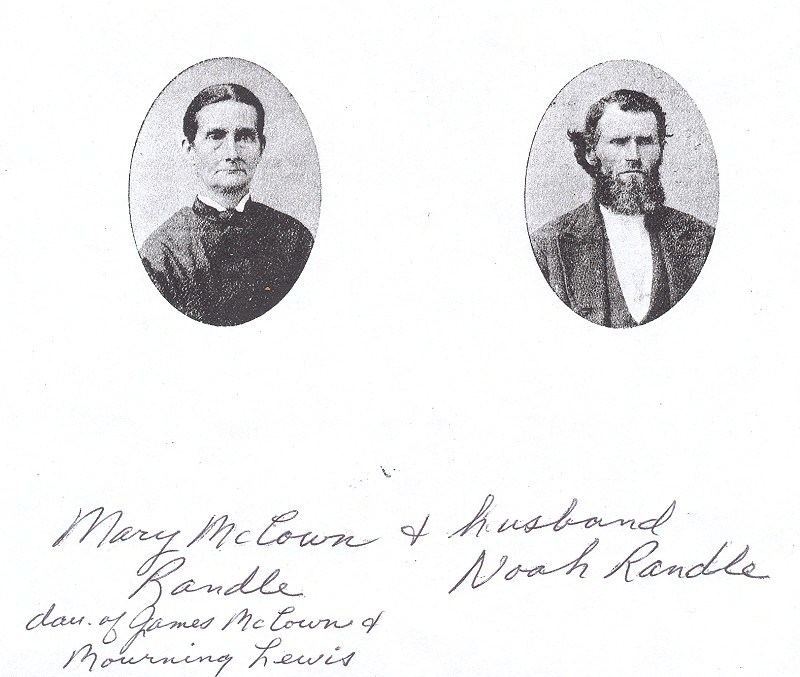 Mary McCown & husband
Randle Noah Randle
dau. of James McCown &
Mourning Lewis